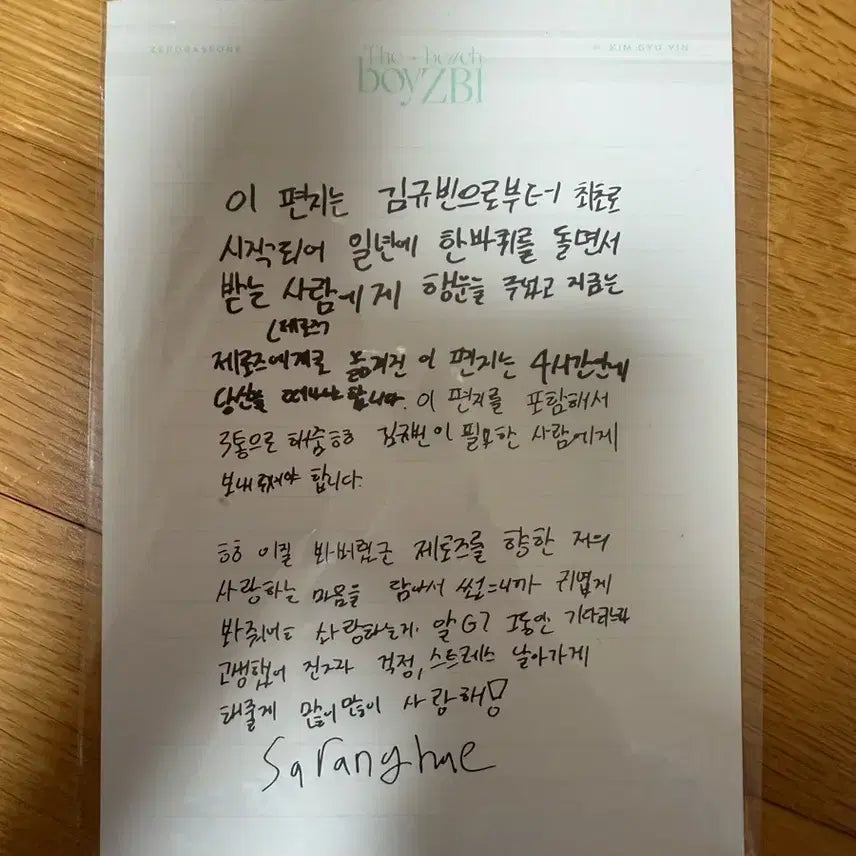 ZEROBASEONE
KIM GYU VIN
The beach
boyZB1
이 편지는 김규빈으로부터 최초로
시작되어 일년에 한바퀴를 돌면서
받는 사람에게 행운을 주었고 지금은
제로즈에게로 옮겨진 이 편지는 4시간안에
당신을 떠나야 합니다. 이 편지를 포함해서
3통으로 ㅎㅎ 김규빈이 필요한 사람에게
보내주셔야 합니다.
ㅎㅎ 이걸 봐버렸군 제로즈를 향한 저의
사랑하는 마음을 담아서 썼으니까 귀엽게
봐줘 사랑하는거 알G? 그동안 기다리느라
고생했어 걱정, 스트레스 날아가게
해줄게 많이많이 사랑해!
Saranghae